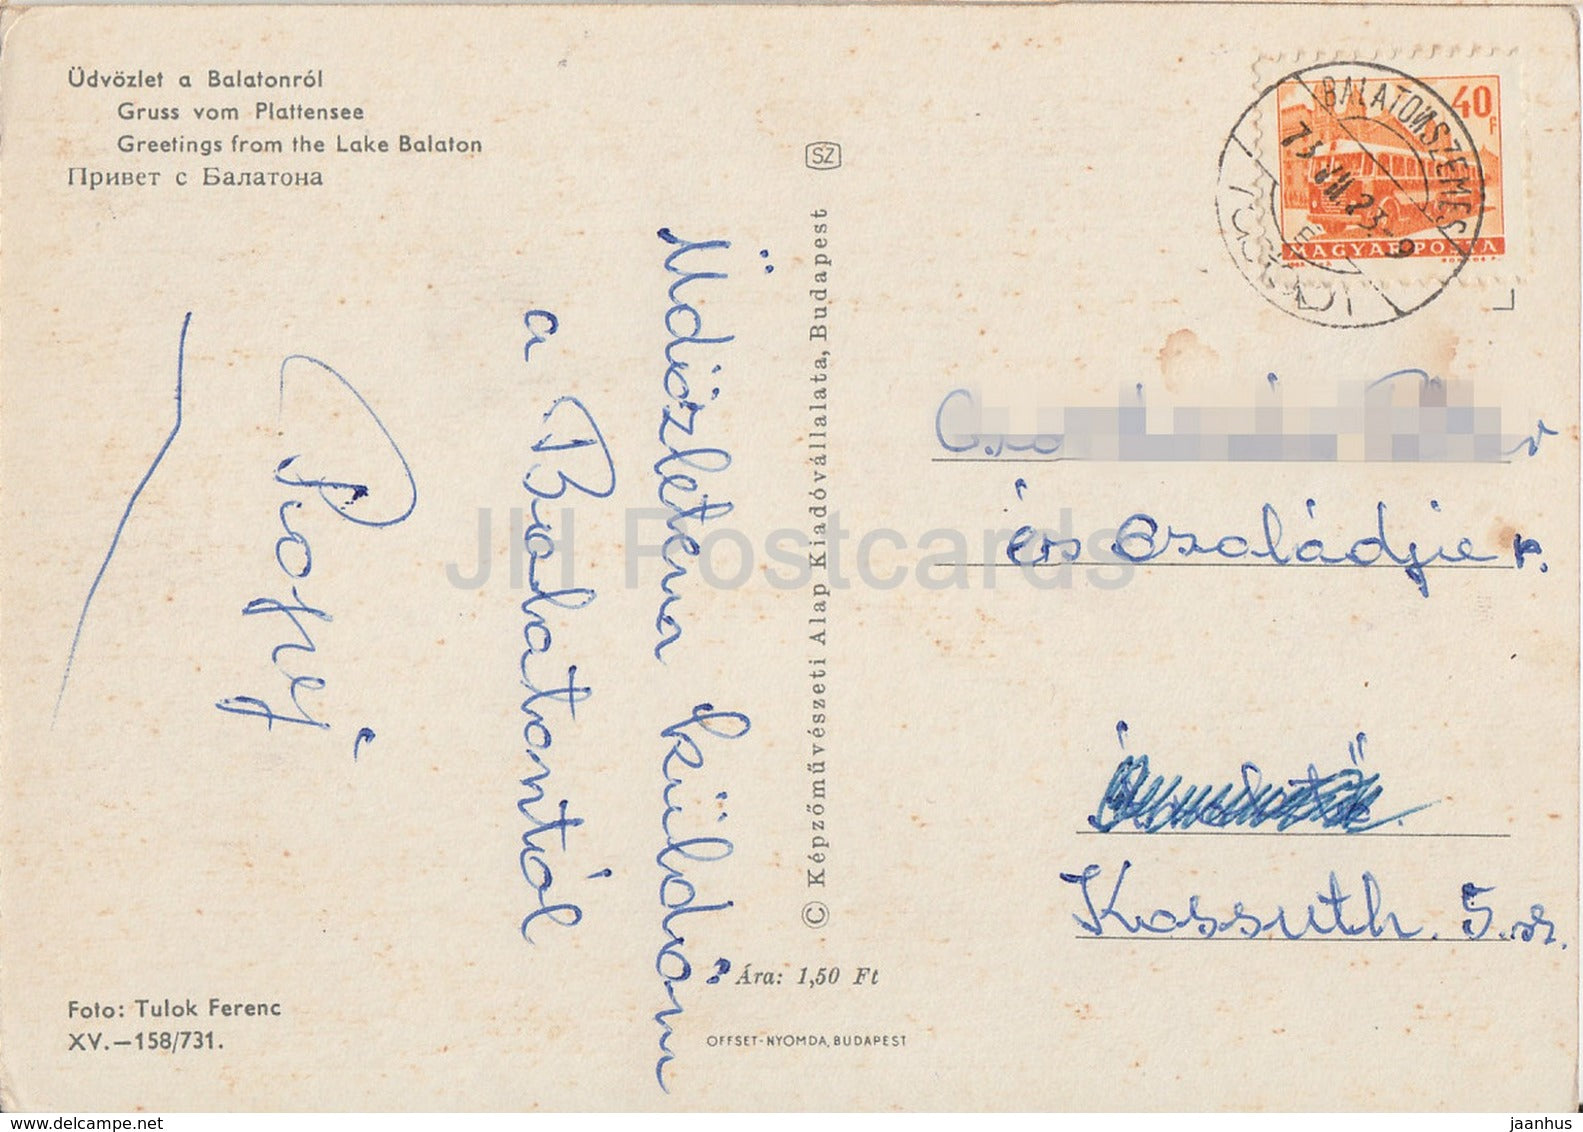 Üdvözlet a Balatonról
Gruss vom Plattensee
Greetings from the Lake Balaton
Привет с Балатона
SZ
BALATONSZEMES
73 VII. 23.-9
40 F
MAGYAR POSTA
Üdvözletem küldöm
a Balatontól
és családjie r.
Kossuth. 5. sz.
© Képzőművészeti Alap Kiadóvállalata, Budapest
Ára: 1,50 Ft
Foto: Tulok Ferenc
XV.—158/731.
OFFSET-NYOMDA, BUDAPEST
JH Postcards
www.delcampe.net
jaanhus